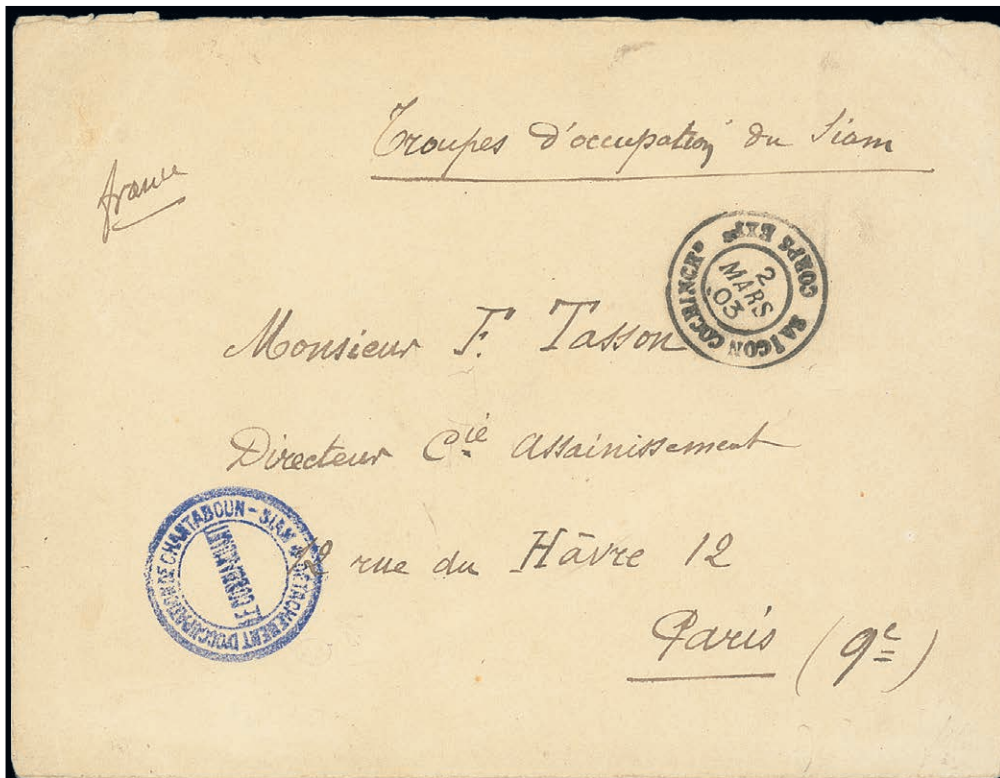 Troupes d'occupation du Siam
france
CORPS EXP.re SAIGON COCHINCH.e
2
MARS
03
Monsieur F. Tasson
Directeur Cie Assainissement
12 rue du Hâvre 12
Paris (9e)
DETACHEMENT D'OCCUPATION DE CHANTABOUN - SIAM
LE COMMANDANT